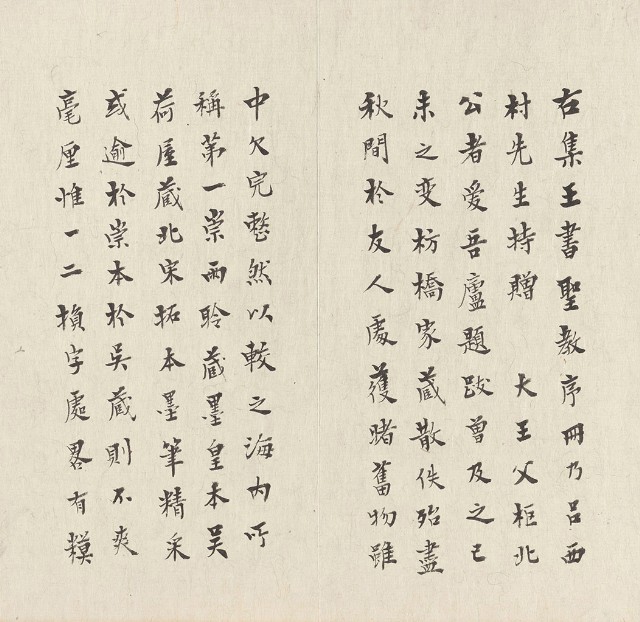 右集王書聖教序冊乃呂西
村先生持贈 大王父柜北
公者愛吾廬題跋曾及之己
未之變枋橋家藏散佚殆盡
秋間於友人處獲睹舊物雖
中欠完整然以較之海内所
稱第一崇雨舲藏墨皇本吴
荷屋藏北宋拓本墨筆精采
或逾於崇本於吴藏則不爽
毫厘惟一二損字處畧有糢